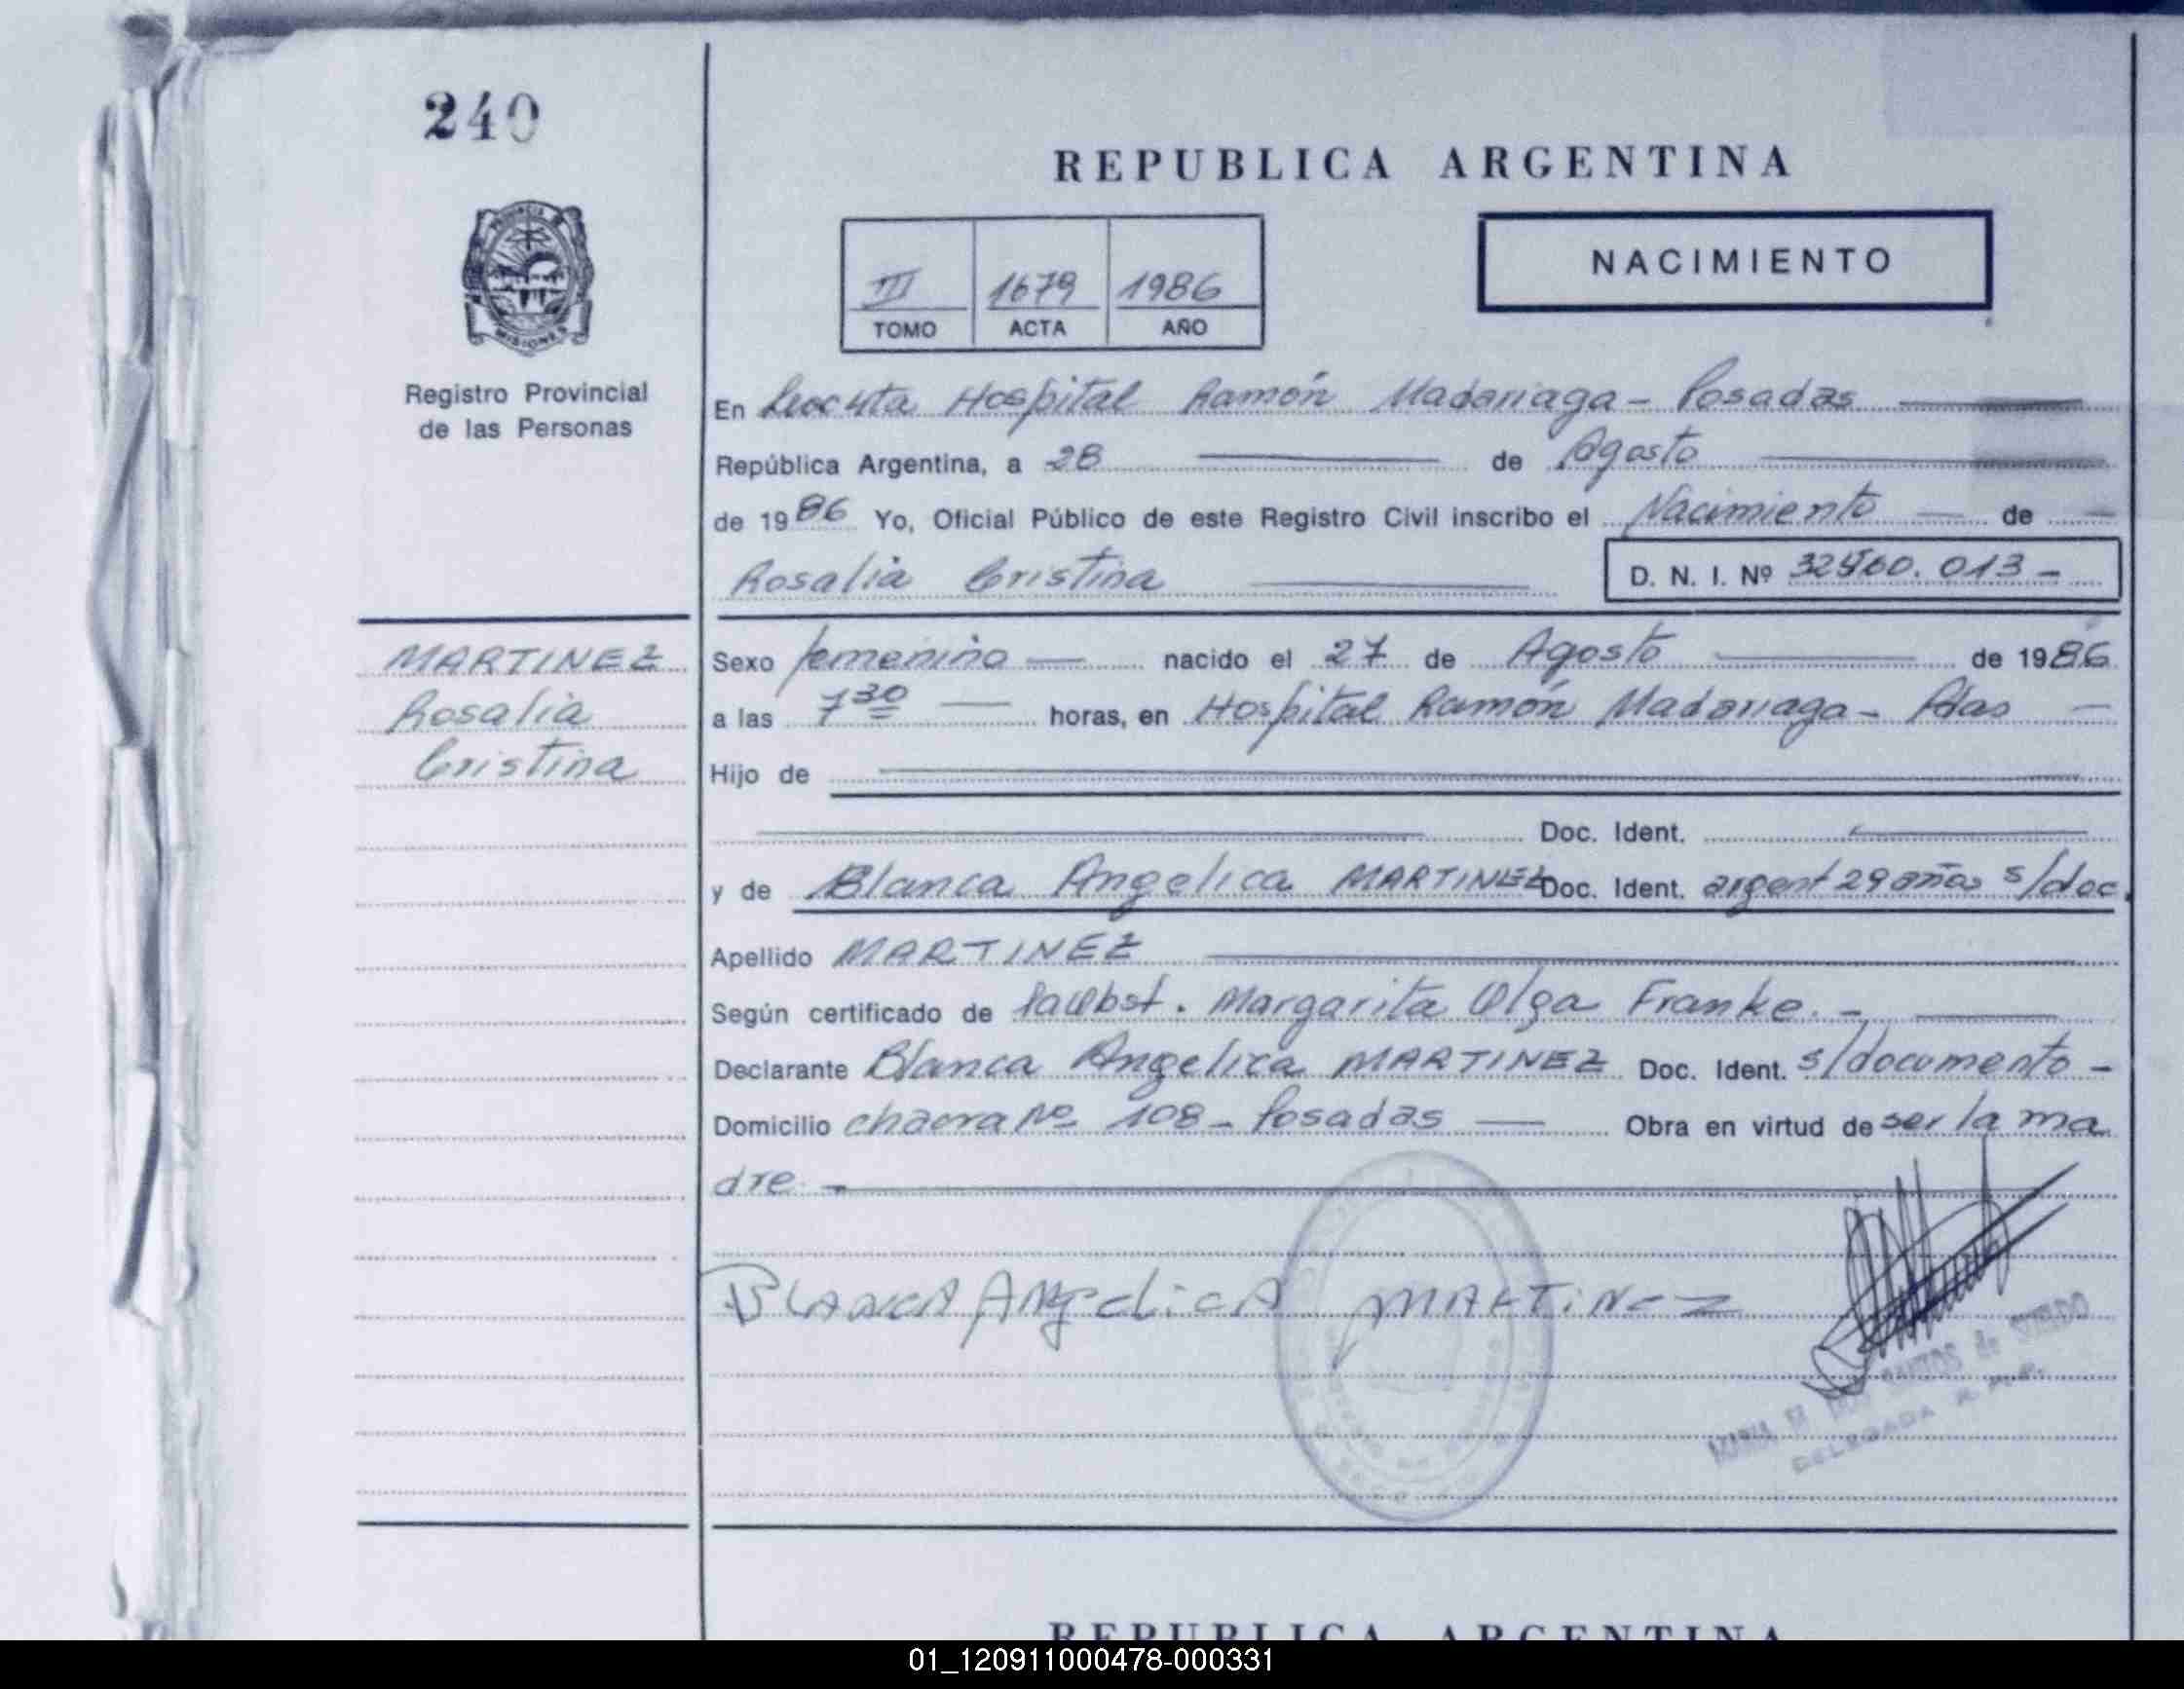 240
REPUBLICA ARGENTINA
NACIMIENTO
III 1679 1986
TOMO ACTA AÑO
PROVINCIA DE
MISIONES
Registro Provincial
de las Personas
En Hospital Ramón Madariaga - Posadas
República Argentina, a 28 de Agosto
de 1986 Yo, Oficial Público de este Registro Civil inscribo el Nacimiento de
Rosalia Cristina D. N. I. Nº
MARTINEZ
Rosalia
Cristina
Sexo femenino nacido el 27 de Agosto de 1986
a las 7 30 horas, en Hospital Ramón Madariaga - Pdas
Hijo de
Doc. Ident.
y de Blanca Angelica MARTINEZ Doc. Ident. argent 29 años s/doc.
Apellido MARTINEZ
Según certificado de Margarita Olga Franke. -
Declarante Blanca Angelica MARTINEZ Doc. Ident. s/documento -
Domicilio chacra Nº 108 - Posadas Obra en virtud de ser la ma
dre. -
BLANCA Angelica MARTINEZ
MARIA SANTOS de
DELEGADA
REPUBLICA ARGENTINA
01_120911000478-000331